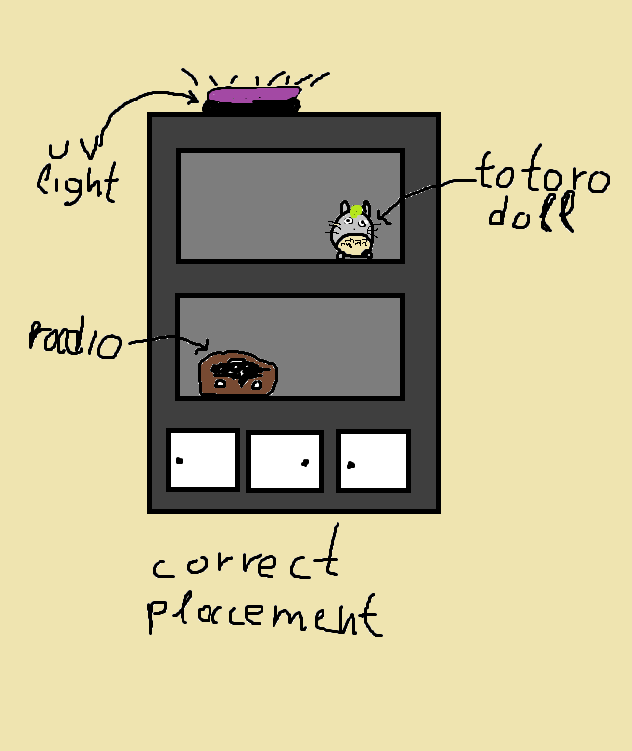 uv
light
totoro
doll
radio
correct
placement